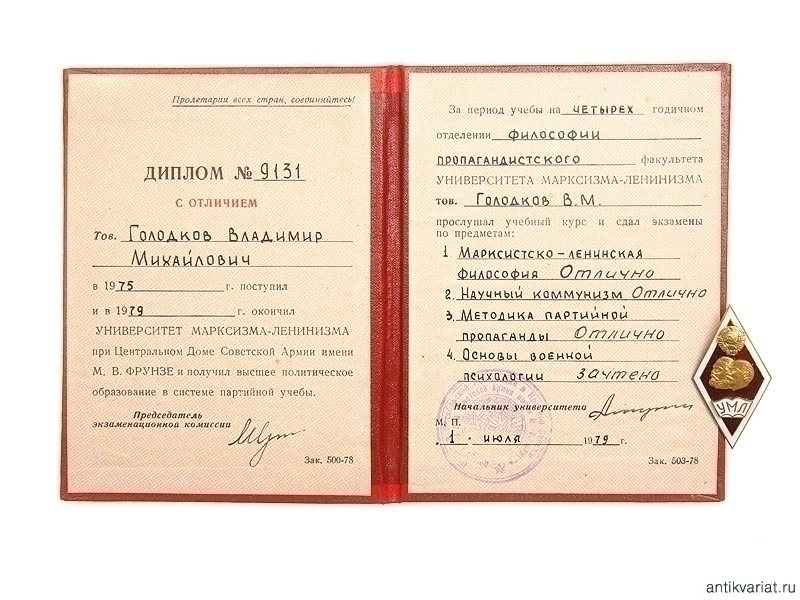 Пролетарии всех стран, соединяйтесь!
ДИПЛОМ № 9131
С ОТЛИЧИЕМ
Тов. Голодков Владимир
Михайлович
в 1975 г. поступил
и в 1979 г. окончил
УНИВЕРСИТЕТ МАРКСИЗМА-ЛЕНИНИЗМА
при Центральном Доме Советской Армии имени
М. В. ФРУНЗЕ и получил высшее политическое
образование в системе партийной учебы.
Председатель
экзаменационной комиссии
Зак. 500-78
За период учебы на четырех годичном
отделении философии
пропагандистского факультета
УНИВЕРСИТЕТА МАРКСИЗМА-ЛЕНИНИЗМА
тов. Голодков В.М.
прослушал учебный курс и сдал экзамены
по предметам:
1 Марксистско-ленинская
философия Отлично
2. Научный коммунизм Отлично
3. Методика партийной
пропаганды Отлично
4. Основы военной
психологии зачтено
Начальник университета
М. П.
1 - июля 1979 г.
Зак. 503-78
УМЛ
antikvariat.ru